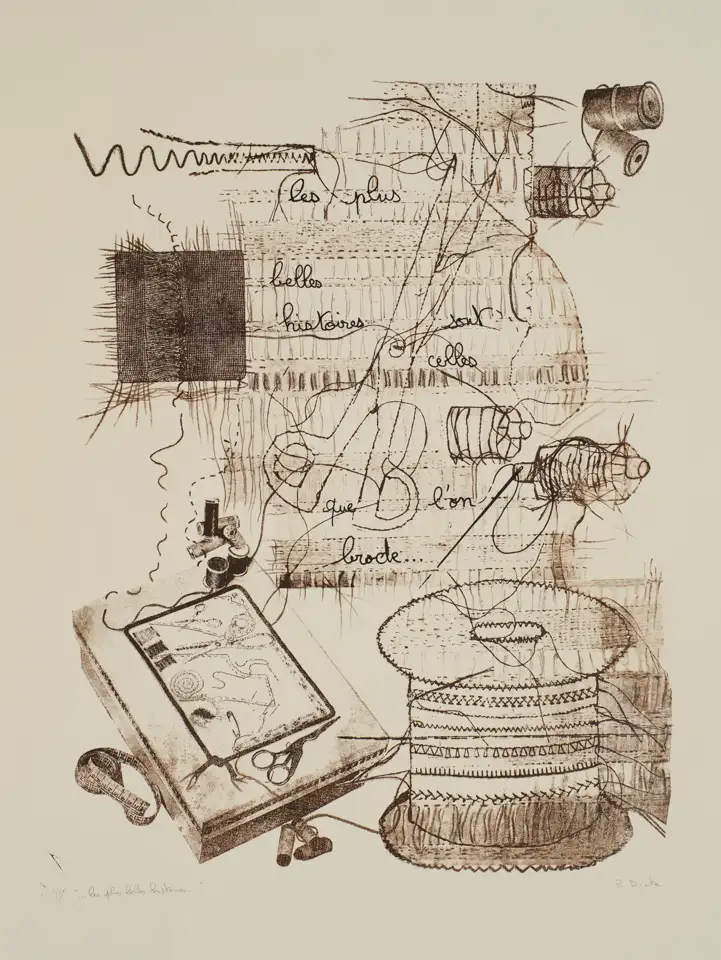 les plus
belles
histoires sont
celles
que l'on
brode...
"...les plus belles histoires..."